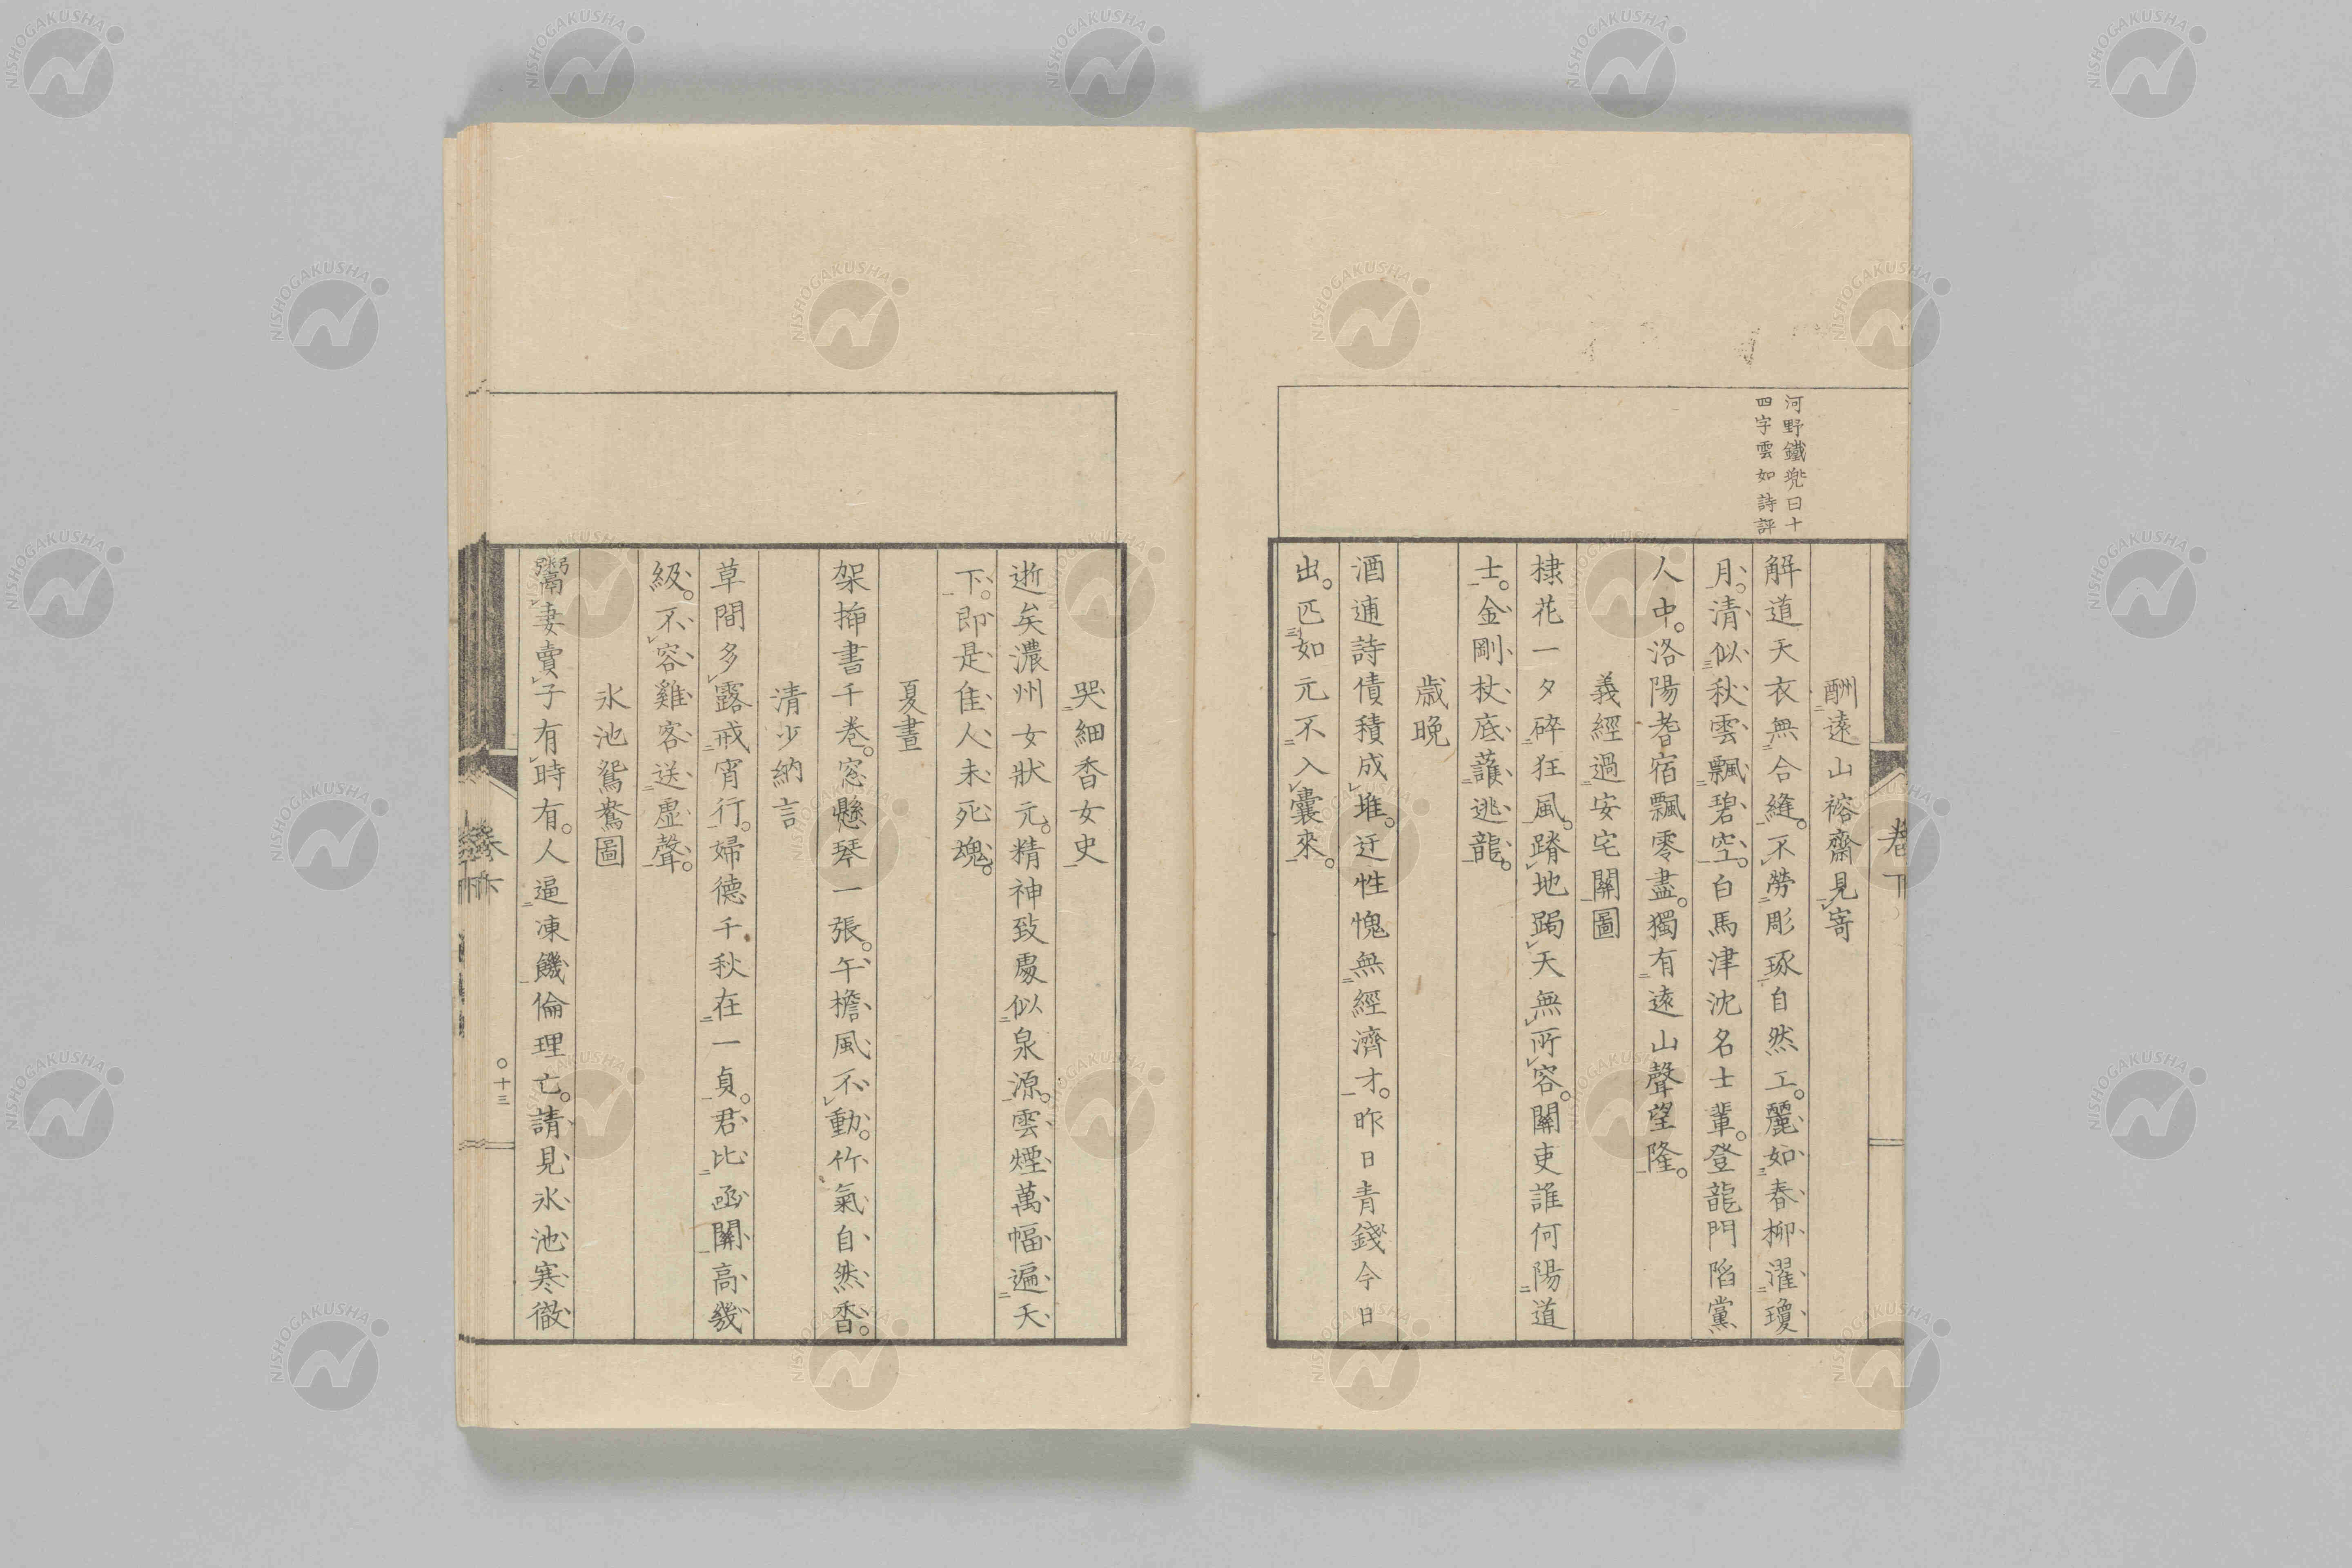 河野鐵兜曰十
四字雲如詩評
酬遠山褣齋見寄
解道天衣無合縫。不勞彫琢自然工。麗如春柳濯瓊
月。清似秋雲飄碧空。白馬津沈名士輩。登龍門陷黨
人中。洛陽耆宿飄零盡。獨有遠山聲望隆。
義經過安宅關圖
棣花一夕碎狂風。蹐地跼天無所容。關吏誰何陽道
士。金剛杖底護逃龍。
歲晚
酒逋詩債積成堆。迂性愧無經濟才。昨日青錢今日
出。匹如元不入囊來。
卷下
哭細香女史
逝矣濃州女狀元。精神致處似泉源。雲煙萬幅遍天
下。即是佳人未死魂。
夏晝
架揷書千卷。窓懸琴一張。午檐風不動。竹氣自然香。
清少納言
草間多露戒宵行。婦德千秋在一貞。君比函關高幾
級。不容雞客送虛聲。
氷池鴛鴦圖
鬻妻賣子有時有。人逼凍饑倫理亡。請見氷池寒徹
卷下
〇十三
NISHOGAKUSHA